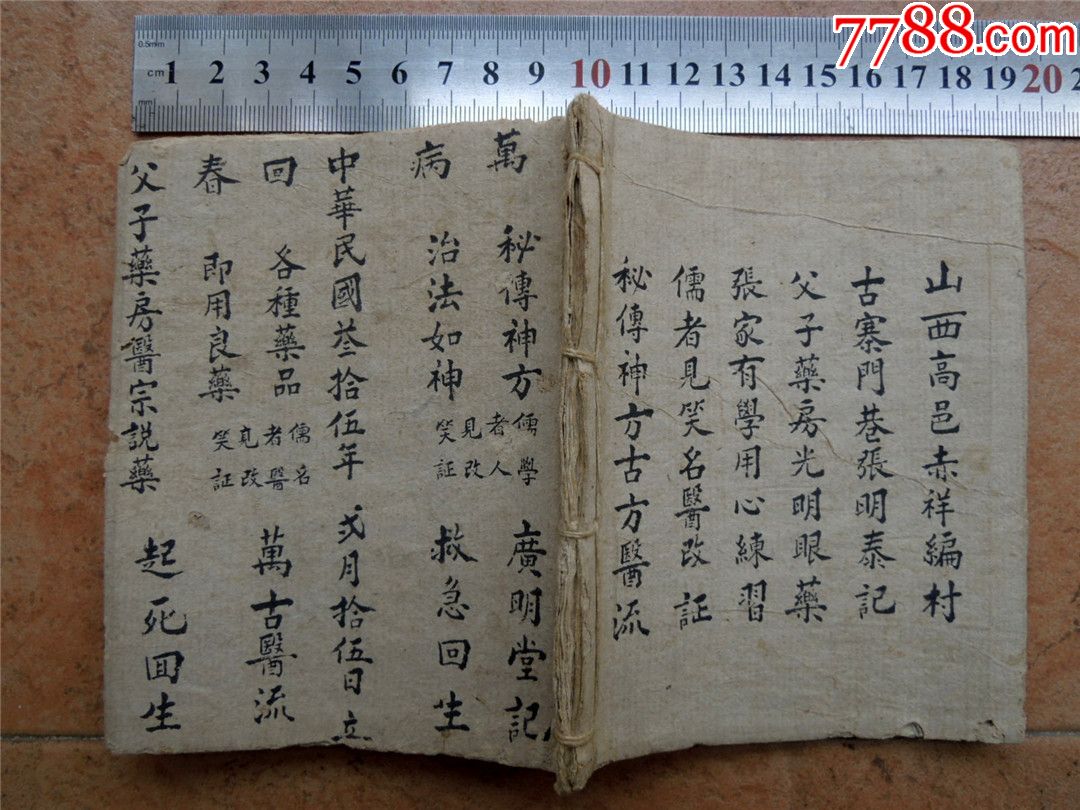 7788.com
0.5mm
cm 1 2 3 4 5 6 7 8 9 10 11 12 13 14 15 16 17 18 19 20 2
mm
山西高邑赤祥編村
古寨門巷張明泰記
父子藥房光明眼藥
張家有學用心練習
儒者見笑名醫改証
秘傳神方古方醫流
萬 秘傳神方 廣明堂記
病 治法如神 救急回生
儒者見笑
學人改証
中華民國叁拾伍年 弍月拾伍日立
回 各種藥品 萬古醫流
春 即用良藥
儒者見笑
名醫改証
父子藥房醫宗説藥 起死囬生